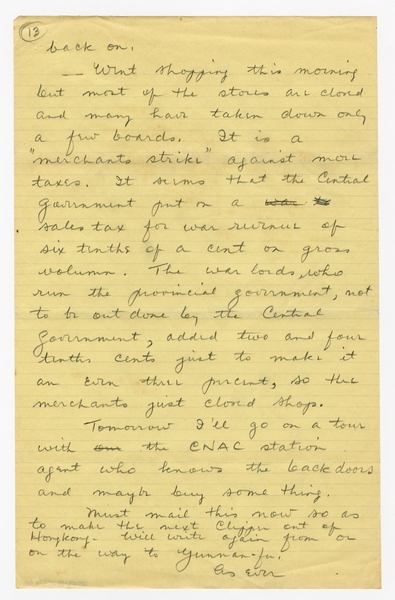 13
back on.
— Went shopping this morning
but most of the stores are closed
and many have taken down only
a few boards. It is a
"merchants strike" against more
taxes. It seems that the Central
Government put on a war
sales tax for war revenue of
six tenths of a cent on gross
volumn. The war lords, who
run the provincial government, not
to be out done by the Central
Government, added two and four
tenths cents just to make it
an even three percent, so the
merchants just closed shop.
Tomorrow I'll go on a tour
with the CNAC station
agent who knows the back doors
and maybe buy some thing.
Must mail this now so as
to make the next Clipper out of
Hongkong. Will write again from or
on the way to Yunnan-fu.
As ever